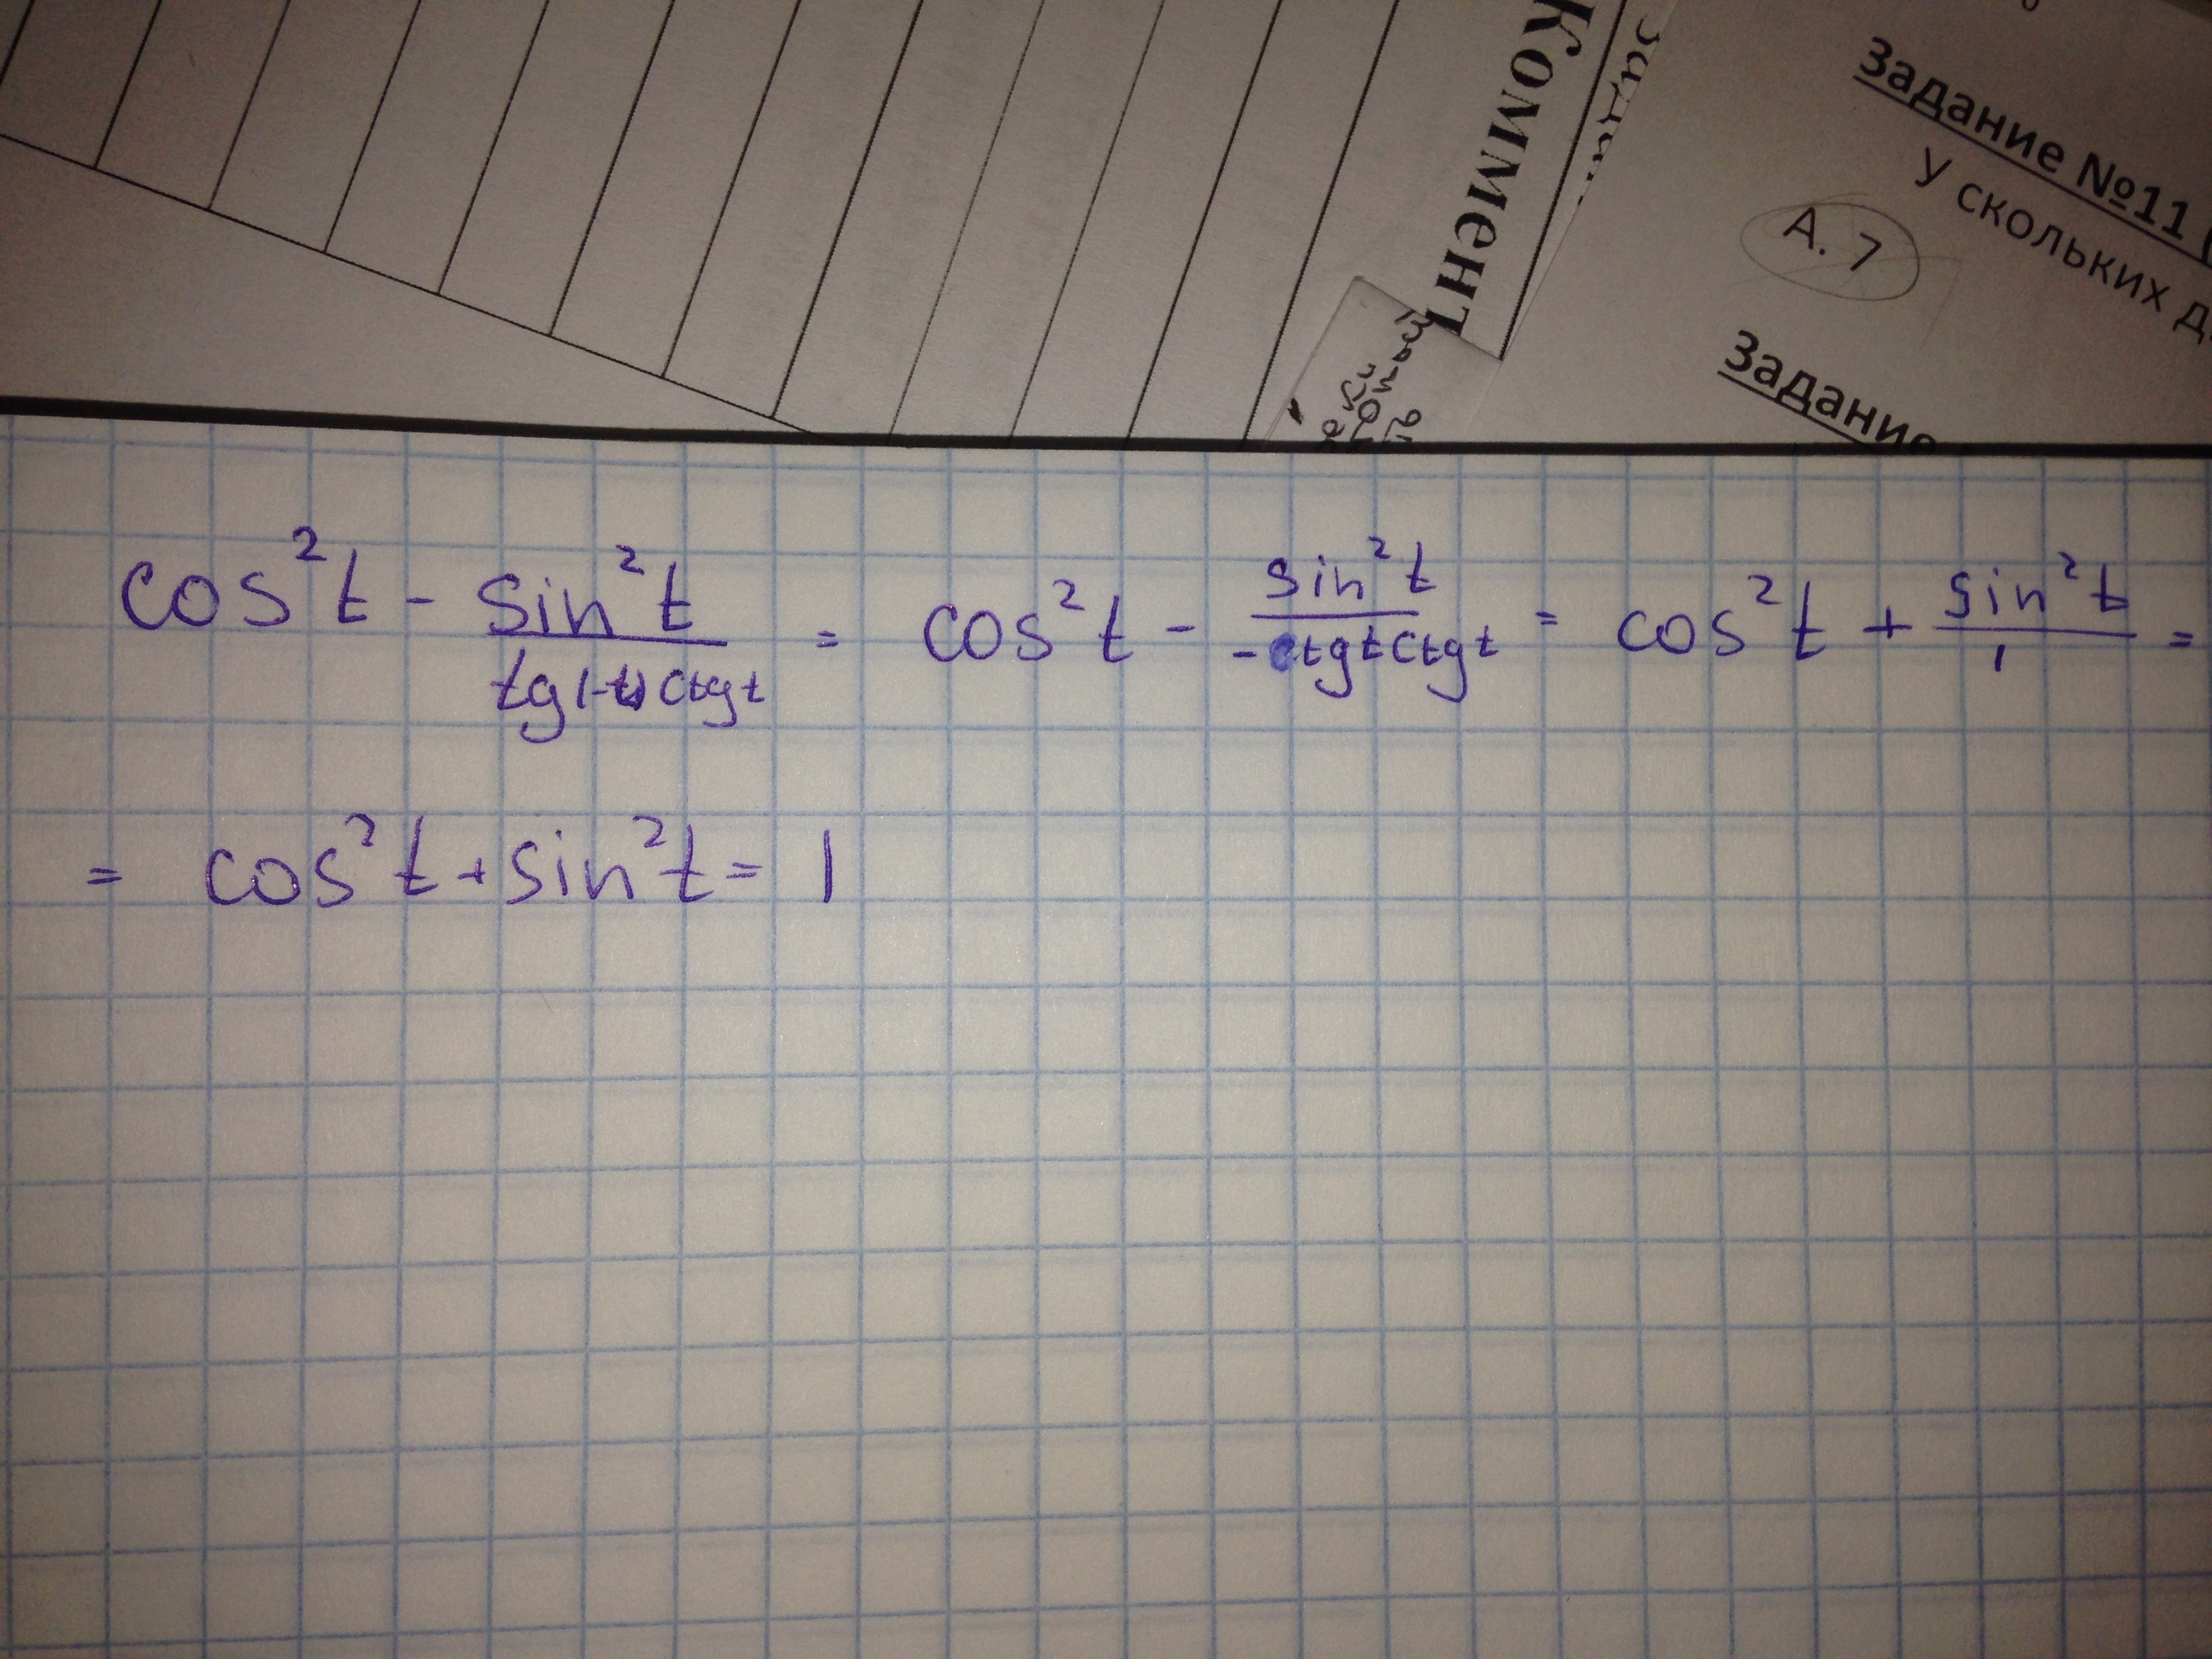 Коммент
Задание №11
У скольких д
А. 7
Задание
cos²t - sin²t/tg(-t)ctgt = cos²t - sin²t/-tgtctgt = cos²t + sin²t/1 =
= cos²t + sin²t = 1